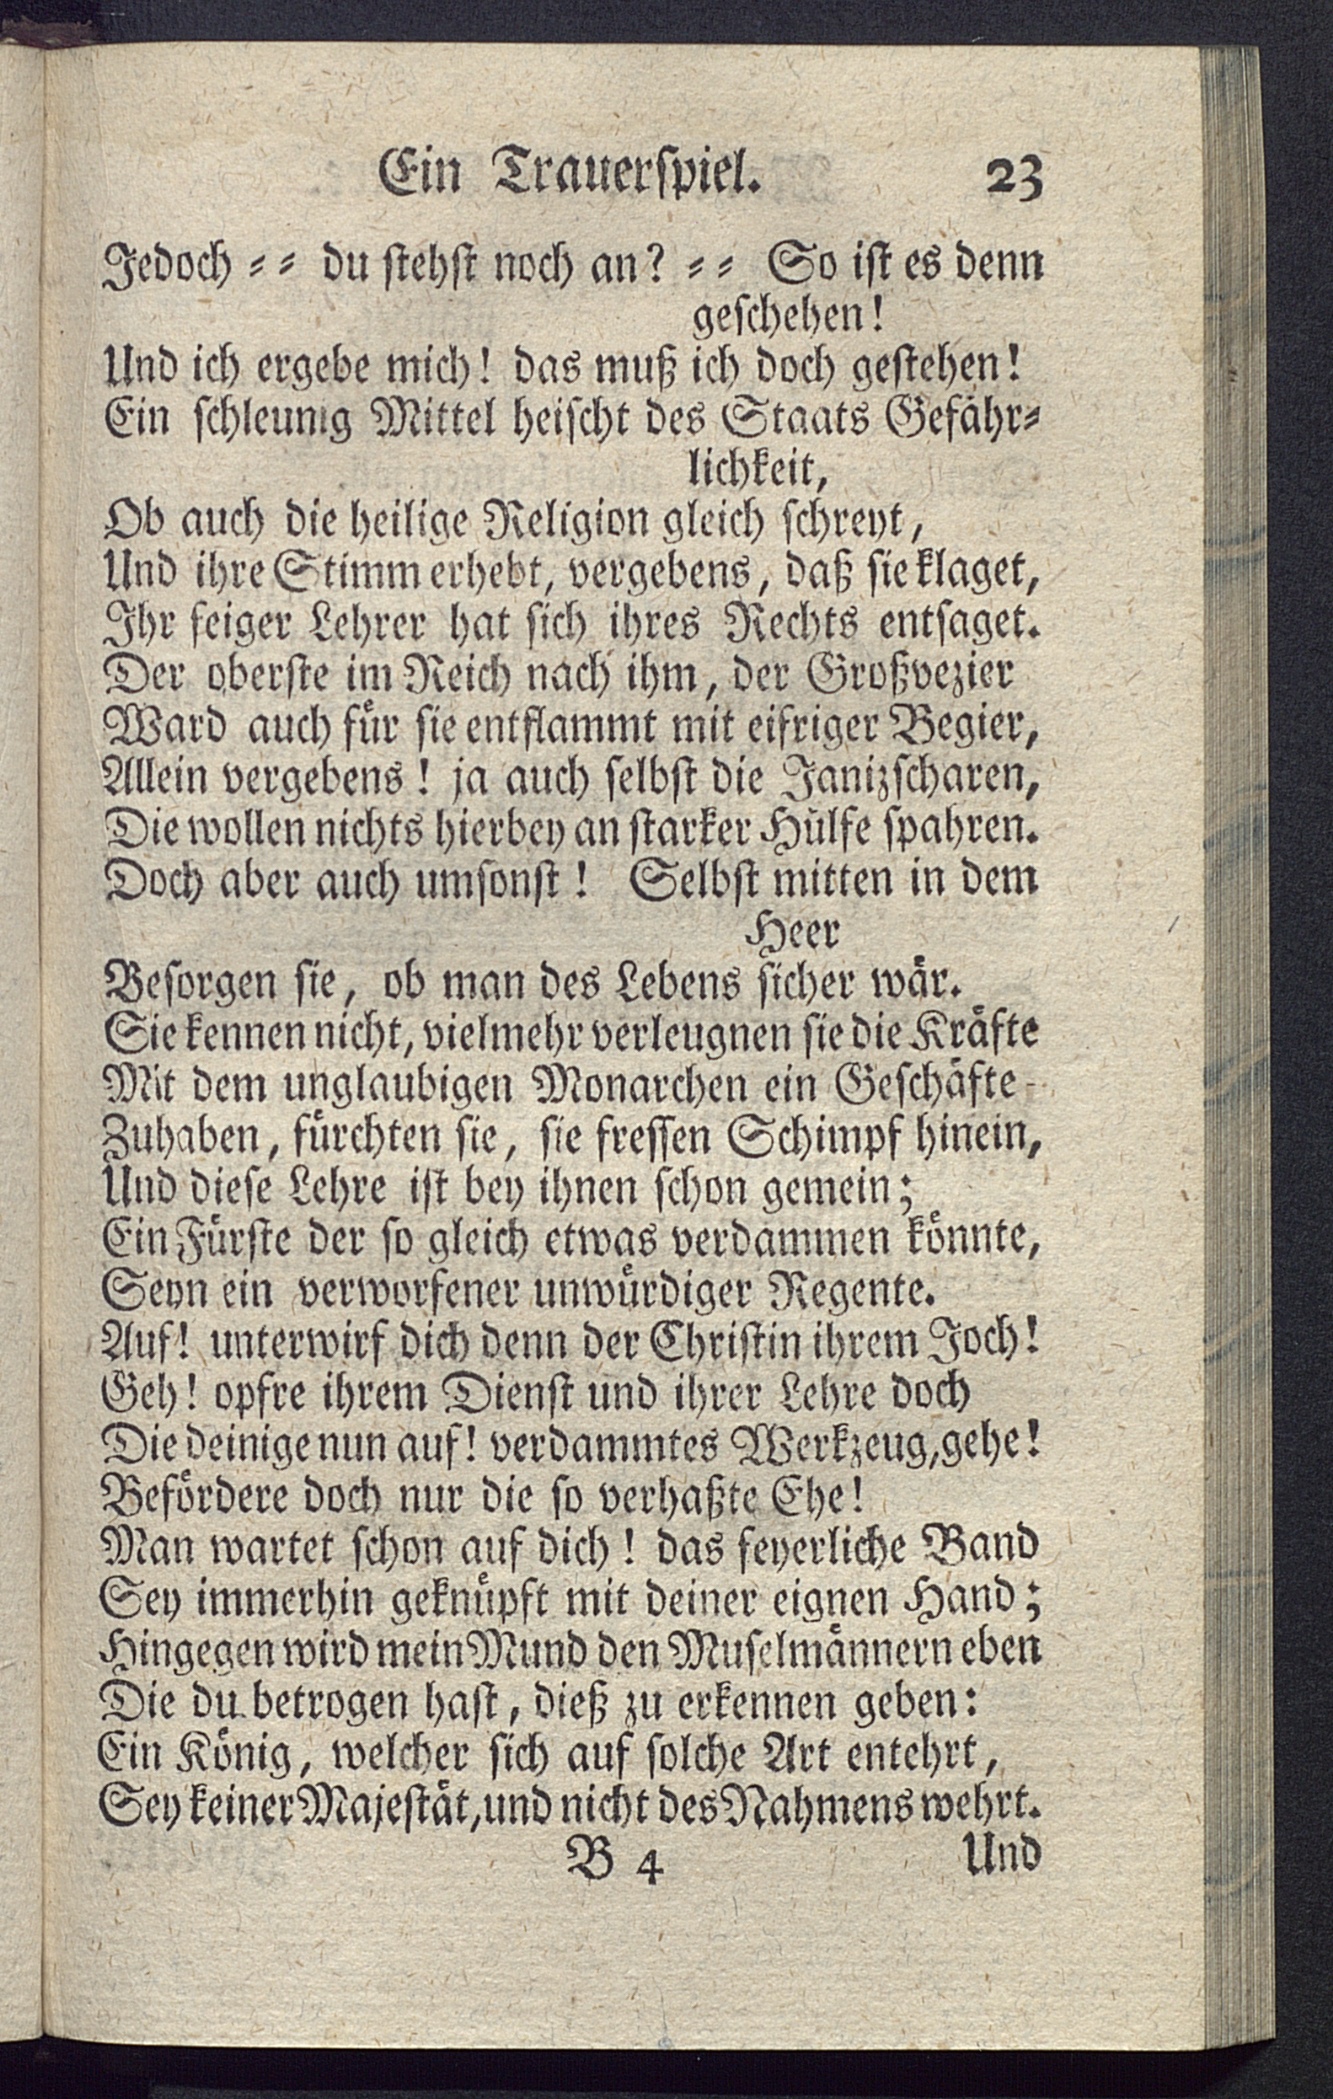 Ein Trauerspiel. 23
Jedoch ⸗ ⸗ du stehst noch an? ⸗ ⸗ So ist es denn
geschehen!
Und ich ergebe mich! das muß ich doch gestehen!
Ein schleunig Mittel heischt des Staats Gefähr⸗
lichkeit,
Ob auch die heilige Religion gleich schreyt,
Und ihre Stimm erhebt, vergebens, daß sie klaget,
Ihr feiger Lehrer hat sich ihres Rechts entsaget.
Der oberste im Reich nach ihm, der Großvezier
Ward auch für sie entflammt mit eifriger Begier,
Allein vergebens! ja auch selbst die Janizscharen,
Die wollen nichts hierbey an starker Hülfe spahren.
Doch aber auch umsonst! Selbst mitten in dem
Heer
Besorgen sie, ob man des Lebens sicher wär.
Sie kennen nicht, vielmehr verleugnen sie die Kräfte
Mit dem unglaubigen Monarchen ein Geschäfte
Zuhaben, fürchten sie, sie fressen Schimpf hinein,
Und diese Lehre ist bey ihnen schon gemein;
Ein Fürste der so gleich etwas verdammen könnte,
Seyn ein verworfener unwürdiger Regente.
Auf! unterwirf dich denn der Christin ihrem Joch!
Geh! opfre ihrem Dienst und ihrer Lehre doch
Die deinige nun auf! verdammtes Werkzeug, gehe!
Befördere doch nur die so verhaßte Ehe!
Man wartet schon auf dich! das feyerliche Band
Sey immerhin geknüpft mit deiner eignen Hand;
Hingegen wird mein Mund den Muselmännern eben
Die du betrogen hast, dieß zu erkennen geben:
Ein König, welcher sich auf solche Art entehrt,
Sey keiner Majestät, und nicht des Nahmens wehrt.
B 4 Und